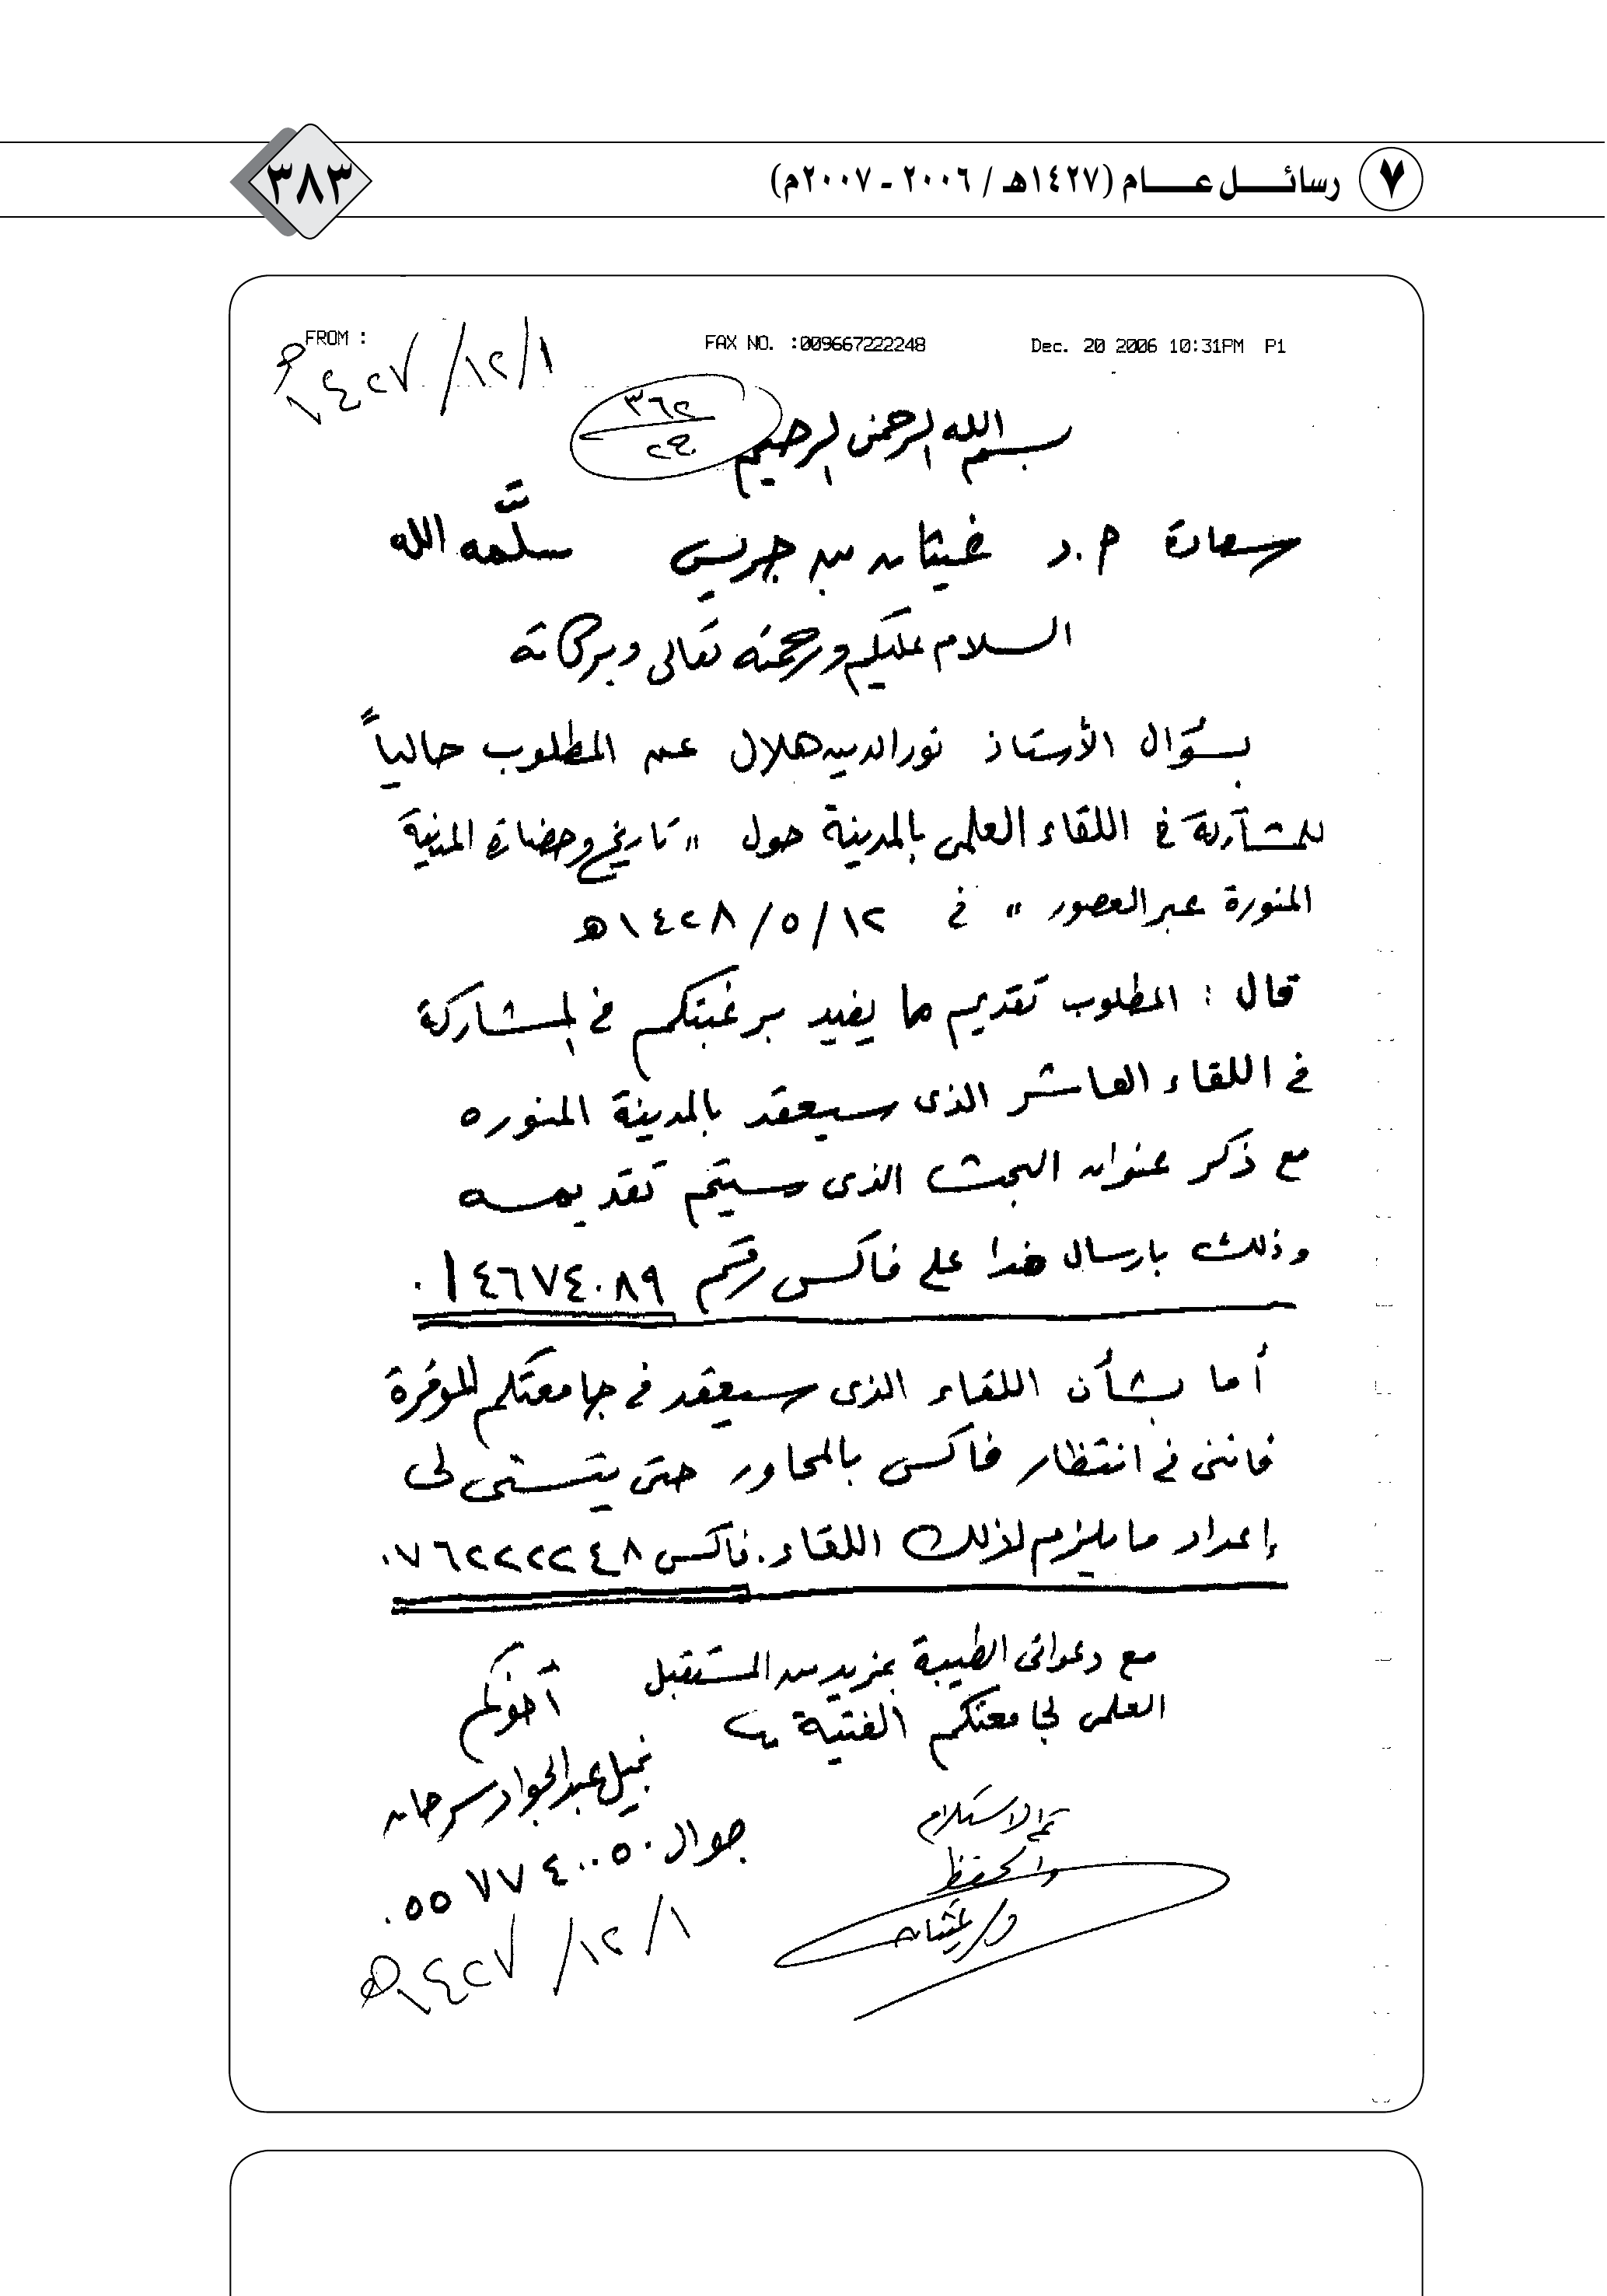 ٧ رسائل عام (١٤٢٧هـ / ٢٠٠٦ - ٢٠٠٧م)
٣٨٣
FROM : FAX NO. :009667222248 Dec. 20 2006 10:31PM P1
١٤٢٧/١٢/١هـ
٣٦٢
٢٩
بسم الله الرحمن الرحيم
سعادة أ.د غيثان بن جريس سلَّمه الله
السلام عليكم ورحمته تعالى وبركاته
بسؤال الأستاذ نور الدين هلال عن المطلوب حالياً
للمشاركة في اللقاء العلمى بالمدينة حول " تاريخ وحضارة المدينة
المنورة عبر العصور " في ١٢/٥/١٤٢٨هـ
قال : المطلوب تقديم ما يفيد برغبتكم في المشاركة
في اللقاء العاشر الذى سيعقد بالمدينة المنوره
مع ذكر عنوان البحث الذى سيتم تقديمه
وذلك بارسال هذا على فاكس رقم ٠١٤٦٧٤٠٨٩
أما بشأن اللقاء الذى سيعقد في جامعتكم الموقرة
فاننى في انتظار فاكس بالمحاور حتى يتسنى لى
إعداد ما يلزم لذلك اللقاء. فاكس ٠٧٦٢٢٢٢٤٨
مع دعواتى الطيبة بمزيد من المستقبل
العلمى لجامعتكم الفتية
أخوكم
نبيل عبد الجواد سرحان
جوال ٠٥٥٧٧٤٠٠٥٠
تم الاستلام
والحفظ
د/ غيثان
١٤٢٧/١٢/١هـ